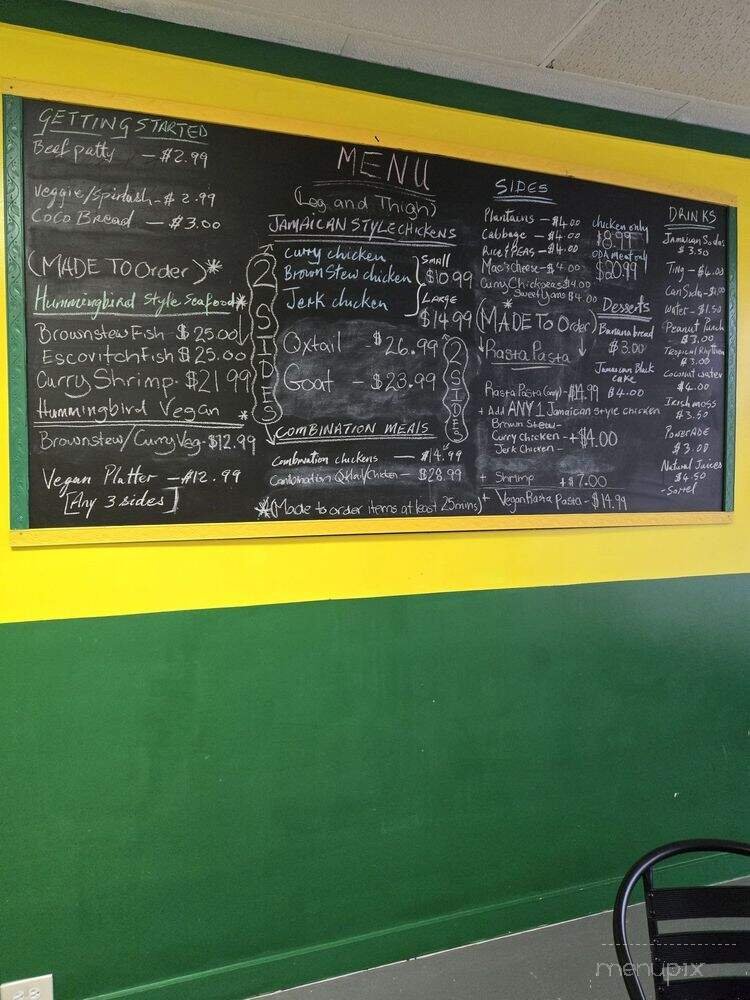 GETTING STARTED
Beef patty - $2.99
Veggie/Spinash - $2.99
Coco Bread - $3.00
(MADE TO order)*
Hummingbird Style Seafood*
Brownstew Fish - $25.00
Escovitch Fish $25.00
Curry Shrimp - $21.99
Hummingbird Vegan *
Brownstew/Curry Veg - $12.99
Vegan Platter - $12.99
[Any 3 sides]
2 SIDES
MENU
(Leg and Thigh)
JAMAICAN STYLE CHICKENS
Curry chicken
Brown Stew chicken
Jerk chicken
Small
$10.99
LARGE
$14.99
Oxtail $26.99
Goat - $23.99
2 SIDES
COMBINATION MEALS
Combination chickens - $14.99
Combination Oxtail/Chicken - $28.99
*(Made to order items at least 25mins)
SIDES
Plantains - $4.00
Cabbage - $4.00
Rice & PEAS - $4.00
Mac & cheese - $4.00
Curry Chickpeas $4.00
Sweet Yams $4.00
chicken only
$8.99
meat only
$20.99
*
(MADE TO Order)
Rasta Pasta
Rasta Pasta - $14.99
+ Add ANY 1 Jamaican style chicken
Brown Stew -
Curry Chicken - + $4.00
Jerk Chicken -
+ Shrimp + $7.00
+ Vegan Rasta Pasta - $14.99
Desserts
Banana bread
$3.00
Jamaican Black
cake
$4.00
DRINKS
Jamaican Sodas
$3.50
Ting - $4.00
Can Soda - $1.00
Water - $1.50
Peanut Punch
$3.00
Tropical Rhythm
$3.00
Coconut water
$4.00
Irish moss
$3.50
POWERADE
$3.00
Natural Juices
$4.50
- Sorrel
menupix